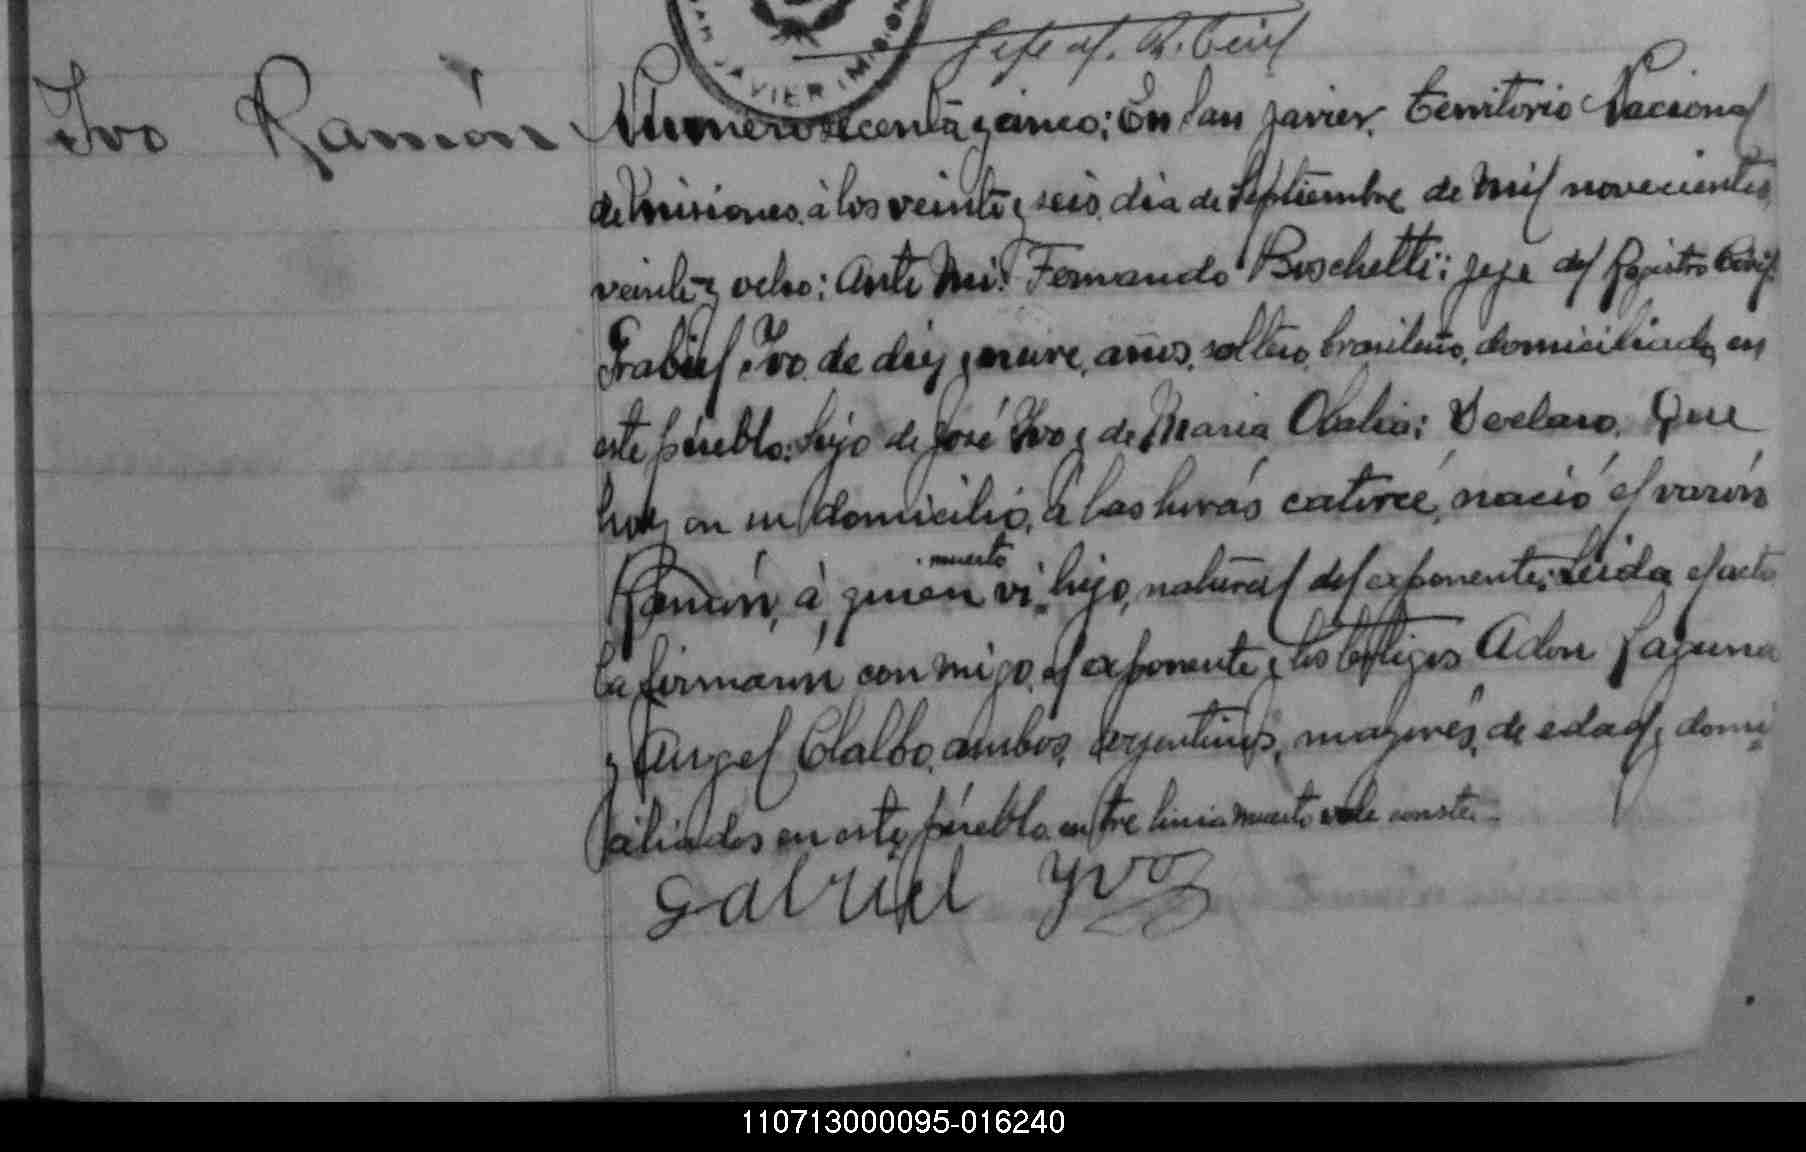 SAN JAVIER (MISIONES
Jefe del R. Civil
Ivo Ramón
Numero secenta y cinco; En San Javier, Territorio Nacional
de Misiones, à los veinte y seis dia de Septiembre de Mil novecientos
veinte y ocho; Ante Mi: Fernando Boschetti; Jefe del Registro Civil
Grabiel Ivo de diez y nueve, años, soltero, brasileño, domiciliado, en
este pueblo; hijo de José Ivo y de Maria Olalia; Declaro. Que
hoy en su domicilio, à las horas catorce, nació el varón
muerto
Ramón, à, quien vi, hijo, natural del exponente; Leida el acta
la firmarón con migo, el exponente y los testigos Adon Laguna
y Angel Olalbo, ambos, argentinos, mayores, de edad y domi
ciliados en este pueblo entre linia muerto vale conste
Gabriel Yvo
110713000095-016240